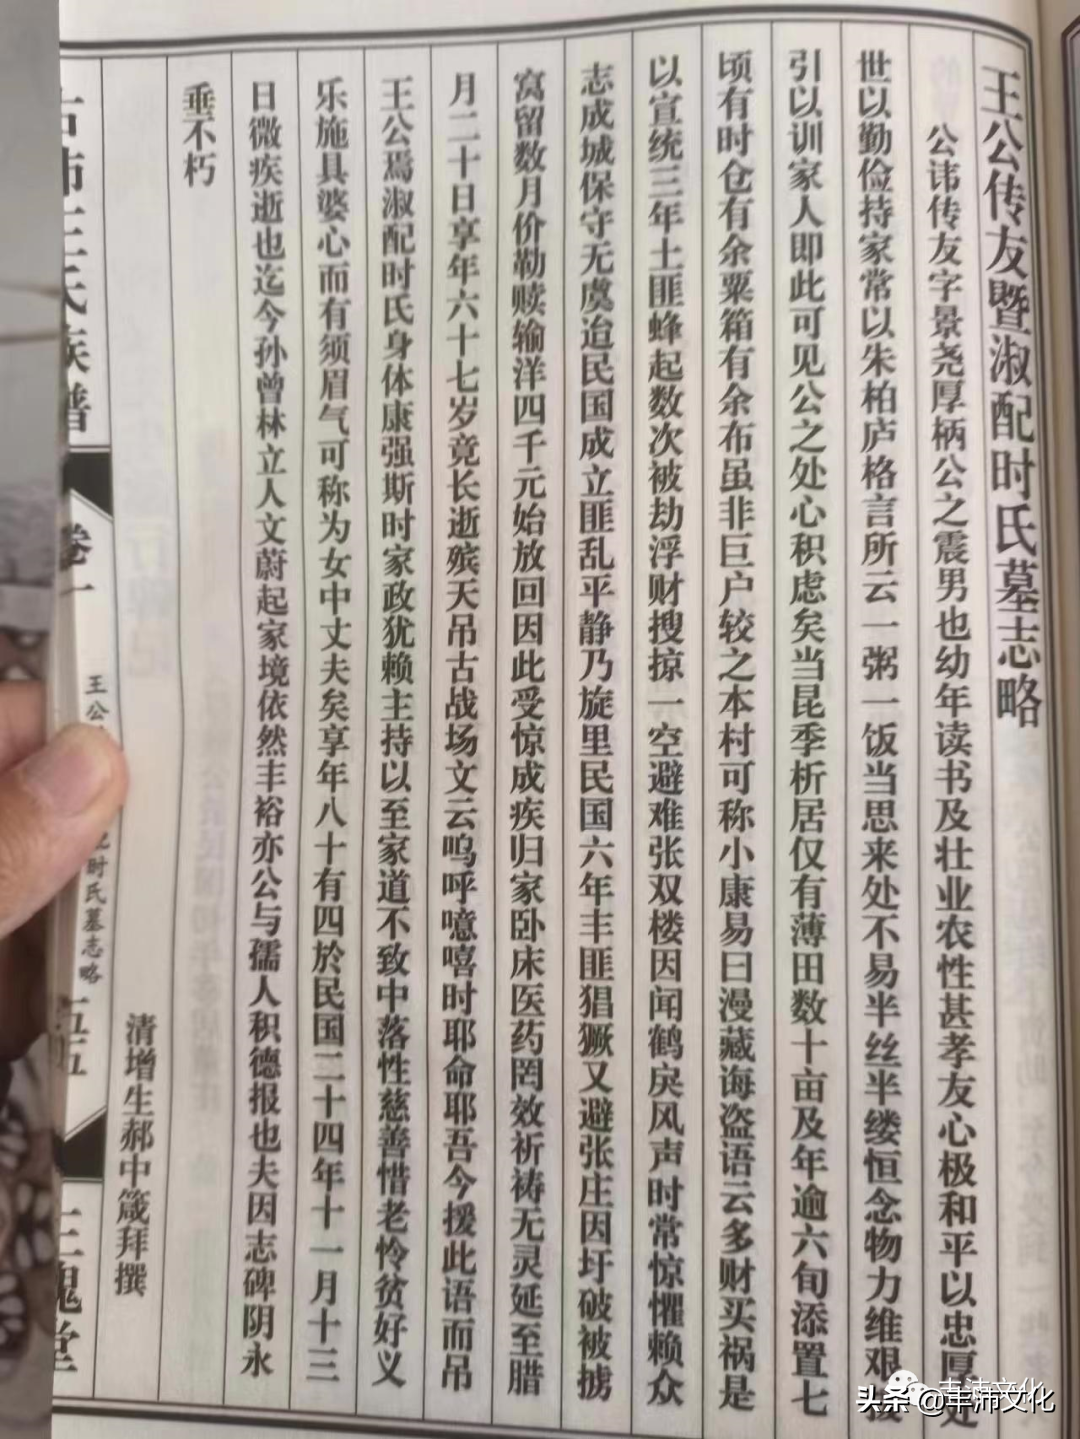 王公传友暨淑配时氏墓志略
公讳传友字景尧厚柄公之震男也幼年读书及壮业农性甚孝友心极和平以忠厚处
世以勤俭持家常以朱柏庐格言所云一粥一饭当思来处不易半丝半缕恒念物力维艰
引以训家人即此可见公之处心积虑矣当昆季析居仅有薄田数十亩及年逾六旬添置七
顷有时仓有余粟箱有余布虽非巨户较之本村可称小康易曰漫藏诲盗语云多财买祸是
以宣统三年土匪蜂起数次被劫浮财搜掠一空避难张双楼因闻鹤戾风声时常惊惧赖众
志成城保守无虞迨民国成立匪乱平静乃旋里民国六年丰匪猖獗又避张庄因圩破被掳
窝留数月价勒赎输洋四千元始放回因此受惊成疾归家卧床医药罔效祈祷无灵延至腊
月二十日享年六十七岁竟长逝殡天吊古战场文云呜呼噫嘻时耶命耶吾今援此语而吊
王公焉淑配时氏身体康强斯时家政犹赖主持以至家道不致中落性慈善惜老怜贫好义
乐施具婆心而有须眉气可称为女中丈夫矣享年八十有四於民国二十四年十一月十三
日微疾逝也迄今孙曾林立人文蔚起家境依然丰裕亦公与孺人积德报也夫因志碑阴永
垂不朽
清增生郝中箴拜撰
王氏族谱
卷一
王公
时氏墓志略
五五
三槐堂
丰沛文化
头条@丰沛文化